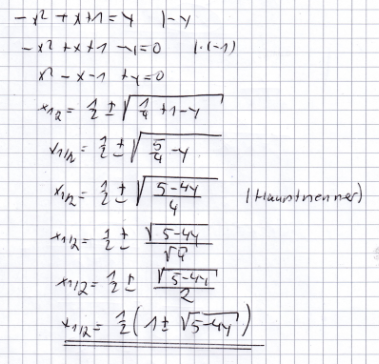 -x² + x + 1 = y   |-y
-x² + x + 1 - y = 0   |·(-1)
x² - x - 1 + y = 0
x1/2 = 1/2 ± √(1/4 + 1 - y)
x1/2 = 1/2 ± √(5/4 - y)
x1/2 = 1/2 ± √((5-4y)/4)   (Hauptnenner)
x1/2 = 1/2 ± √(5-4y)/√4
x1/2 = 1/2 ± √(5-4y)/2
x1/2 = 1/2 (1 ± √(5-4y))